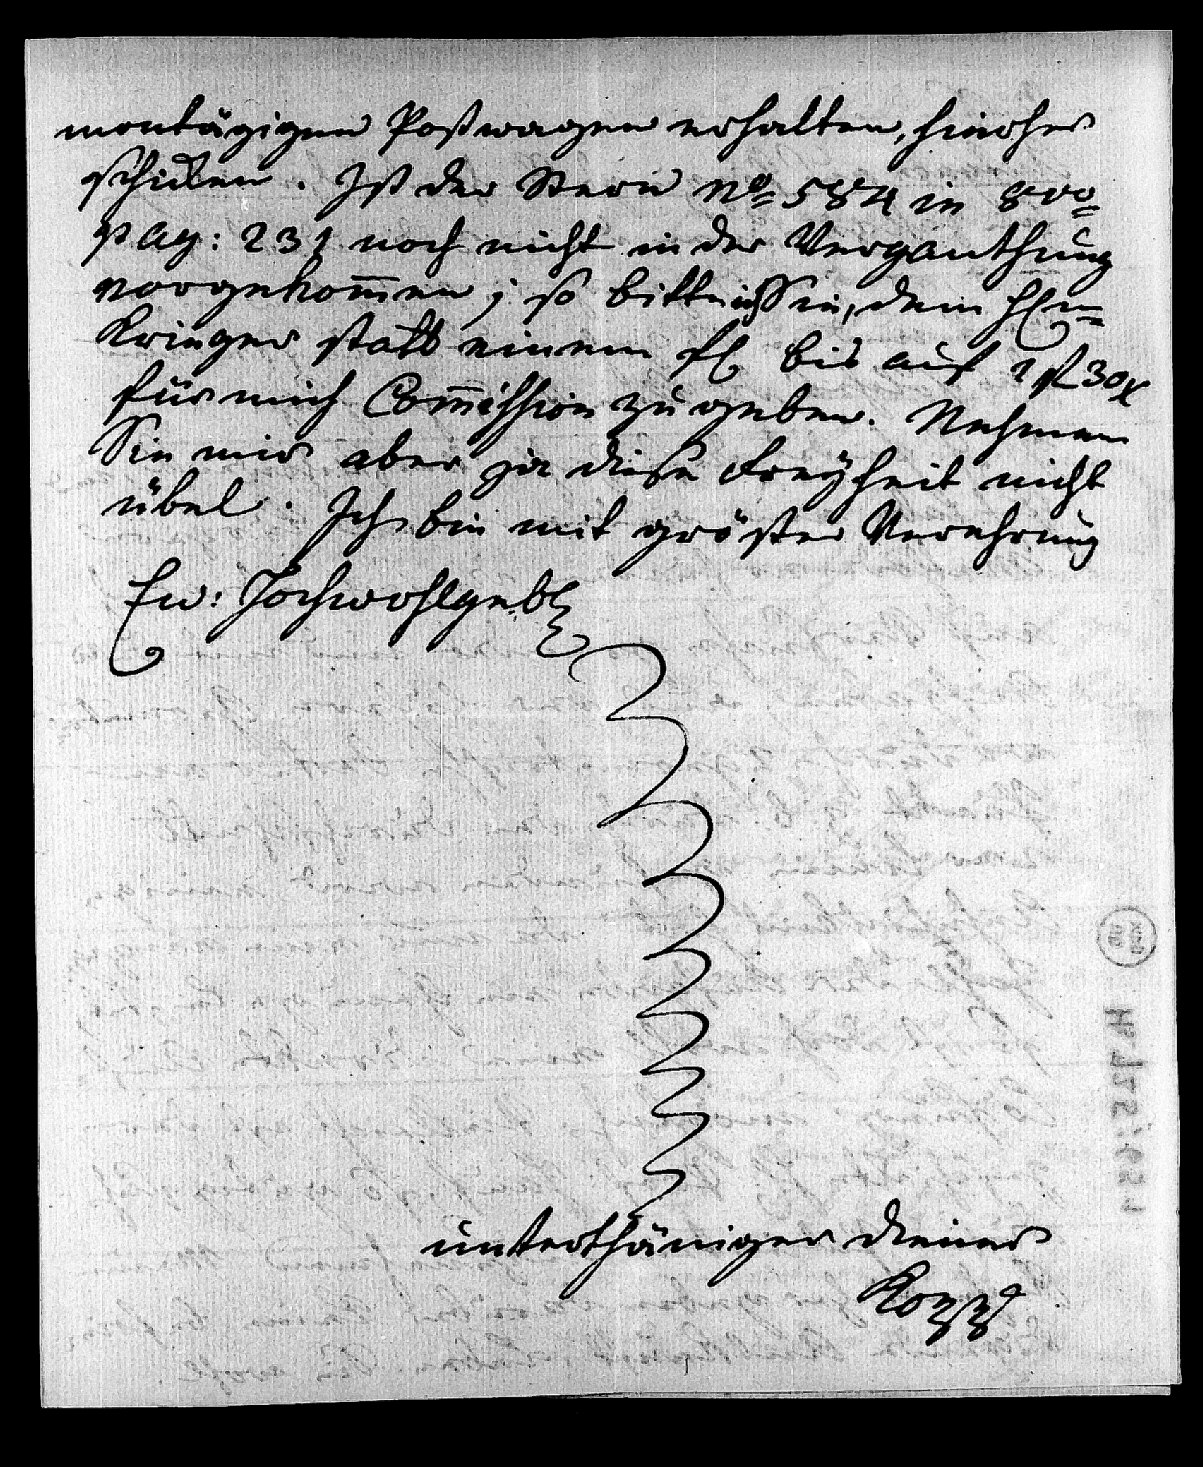 montägigen Postwagen erhalten, hierher
schicken. Ist der Stern No 584 in 8vo
pag: 231 noch nicht in der Verganthung
vorgekom̅en; so bitte ich Sie, dem H
Krieger statt einem fl bis auf 1 fl 30 x
für mich Com̅ission zu geben. Nehmen
Sie mir aber ja diese Freÿheit nicht
übel. Ich bin mit gröster Verehrung
Ew: Hochwohlgeb
unterthäniger Diener